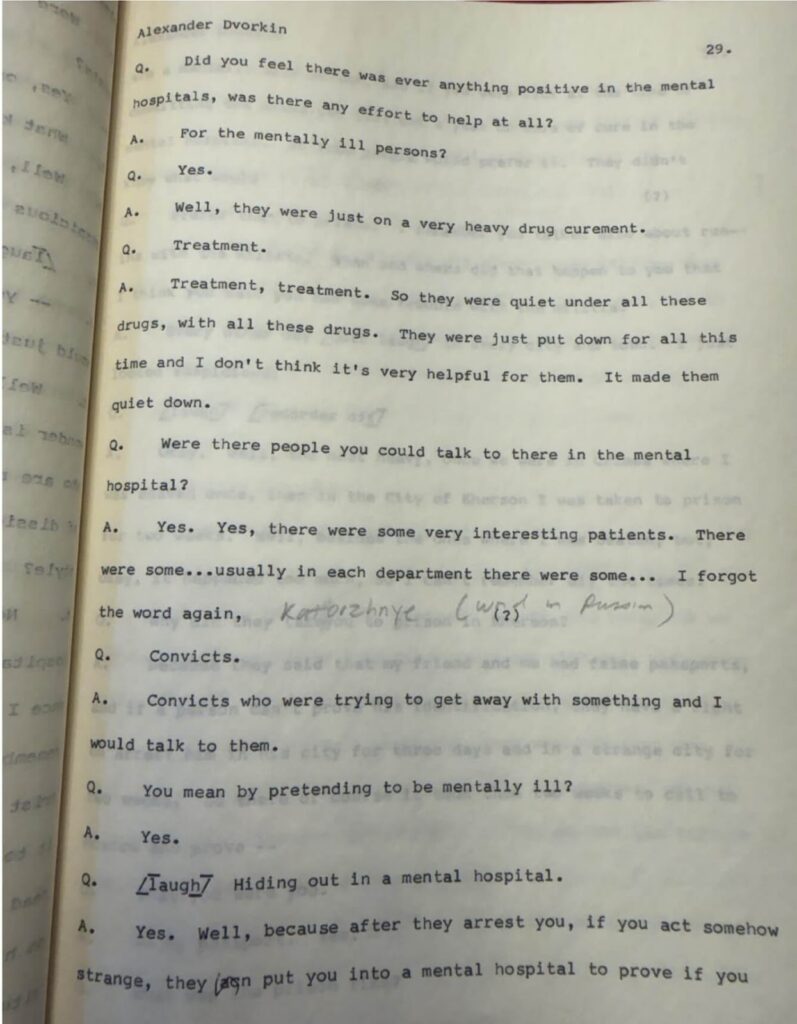 Alexander Dvorkin
29.
Q. Did you feel there was ever anything positive in the mental
hospitals, was there any effort to help at all?
A. For the mentally ill persons?
Q. Yes.
A. Well, they were just on a very heavy drug curement.
Q. Treatment.
A. Treatment, treatment. So they were quiet under all these
drugs, with all these drugs. They were just put down for all this
time and I don't think it's very helpful for them. It made them
quiet down.
Q. Were there people you could talk to there in the mental
hospital?
A. Yes. Yes, there were some very interesting patients. There
were some...usually in each department there were some... I forgot
the word again, Katorzhnye (word in Russian) (?)
Q. Convicts.
A. Convicts who were trying to get away with something and I
would talk to them.
Q. You mean by pretending to be mentally ill?
A. Yes.
Q. [laugh] Hiding out in a mental hospital.
A. Yes. Well, because after they arrest you, if you act somehow
strange, they can put you into a mental hospital to prove if you